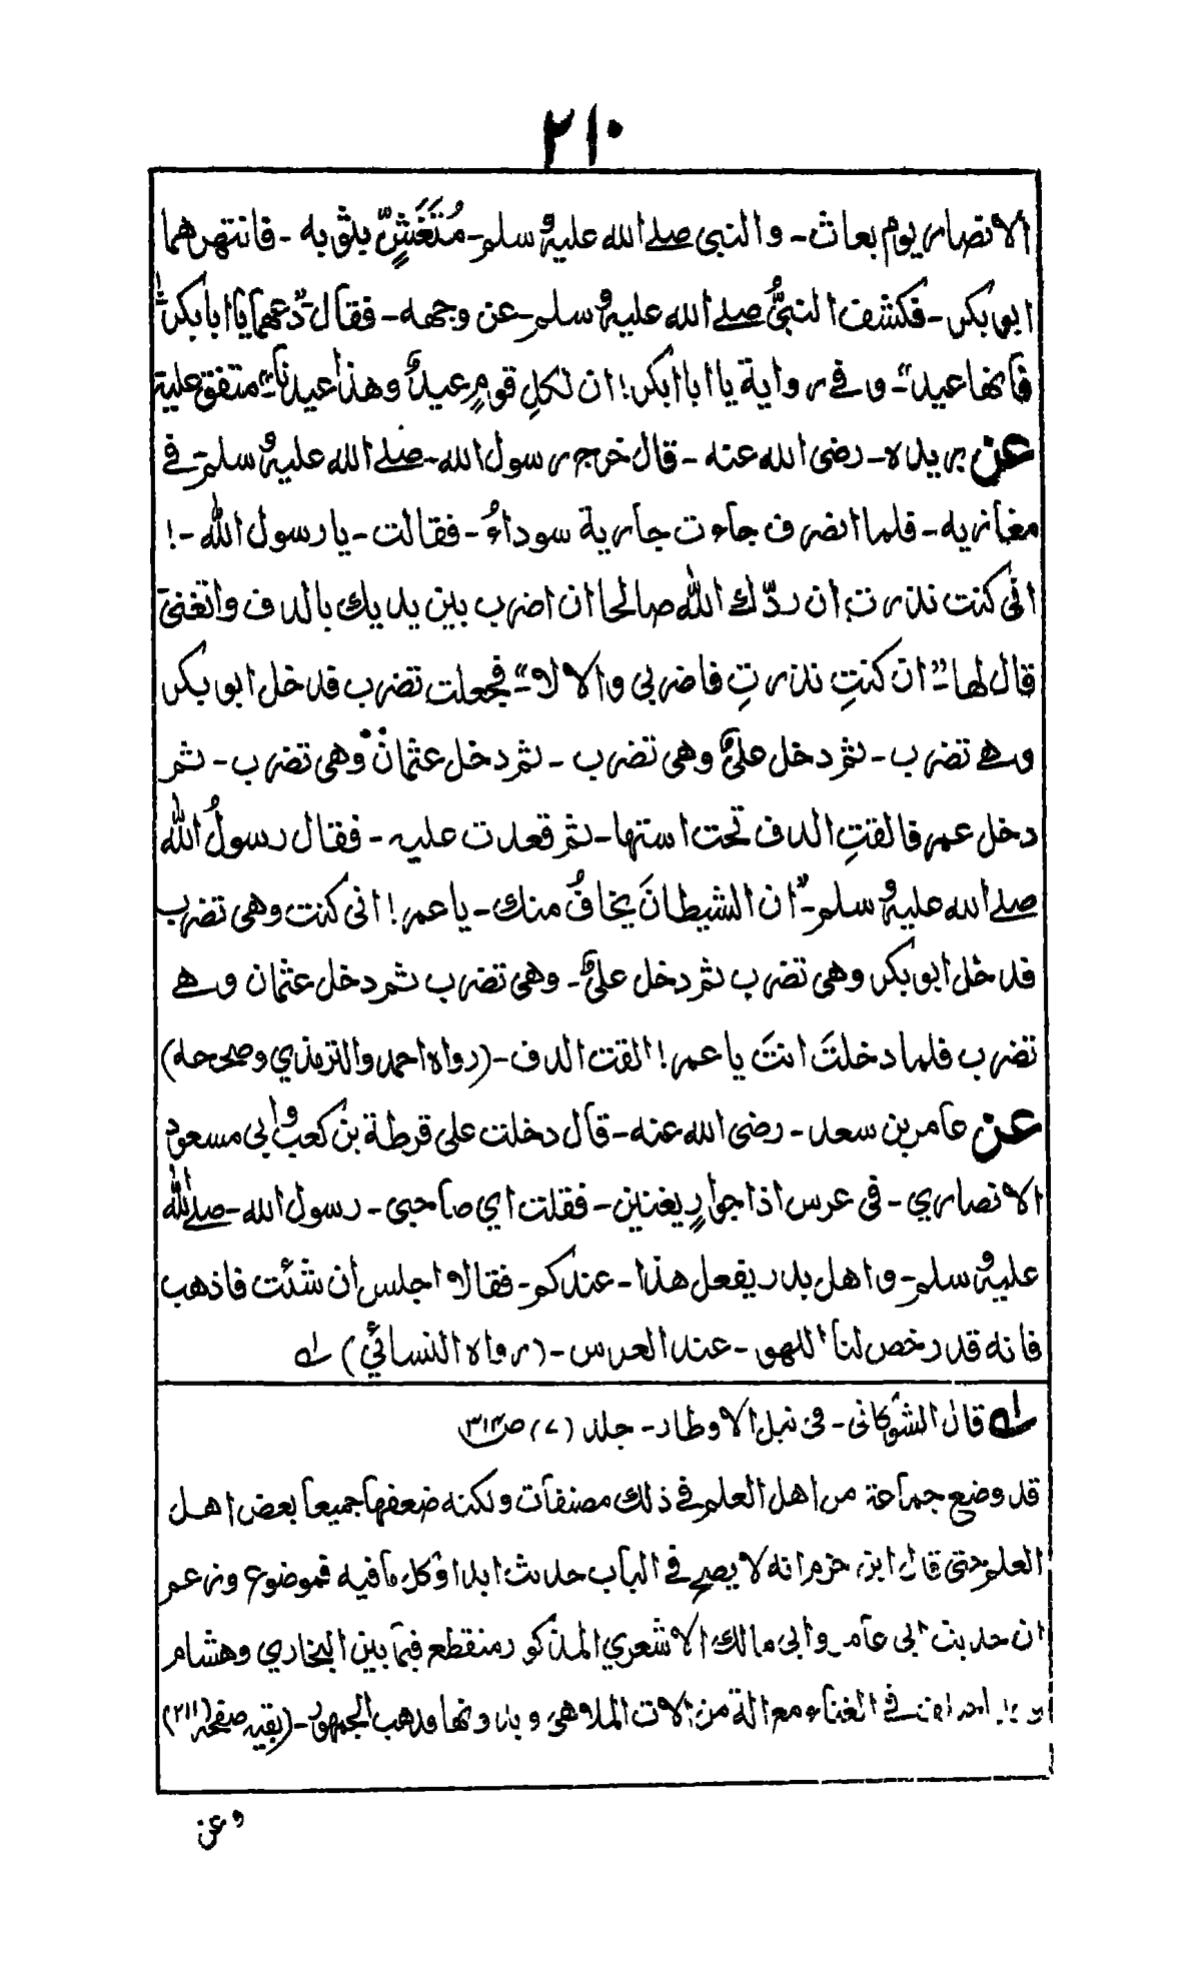 ٢١٠
الانصار يوم بعاث - والنبي صلے الله عليه وسلم - مُتَغَشٍّ بثوبه - فانتهرهما
ابوبكر - فكشف النبيُّ صلے الله عليه وسلم - عن وجهه - فقال "دعهما يا ابابكر
فانها عيد" - و فے رواية يا ابا ابكر! ان لكلِ قومٍ عيدٌ وهذا عيدنا" متفق عليه
عن بريده - رضى الله عنه - قال خرج رسول الله - صلے الله عليه وسلم - فے
مغازيه - فلما انصرف جاءت جارية سوداءُ - فقالت - يا رسول الله - !
انى كنت نذرت ان ردّك الله صالحا ان اضرب بين يديك بالدف واتغنى
قال لها - "ان كنتِ نذرتِ فاضربى والا لا" - فجعلت تضرب فدخل ابوبكر
وهے تضرب - ثم دخل علىؓ وهى تضرب - ثم دخل عثمان وهى تضرب - ثم
دخل عمر فالقتِ الدف تحت استها - ثم قعدت عليه - فقال رسولُ الله
صلے الله عليه وسلم - "ان الشيطانَ يخافُ منك - يا عمر! انى كنت وهى تضرب
فدخل ابوبكر وهى تضرب ثم دخل علىؓ - وهى تضرب ثم دخل عثمان وهے
تضرب فلما دخلتَ انتَ يا عمر! القت الدف - (رواه احمد والترمذي وصححه)
عن عامر بن سعد - رضى الله عنه - قال دخلت على قرظة بن كعب وابي مسعود
الانصاري - فى عرس اذا جوارٍ يغنين - فقلت اي صاحبى - رسول الله - صلے الله
عليه وسلم - واهل بدر يفعل هذا - عندكم - فقالا اجلس ان شئت فاذهب
فانه قد رخص لنا اللهو - عند العرس - (رواه النسائي) له
له قال الشوكانى - فى نيل الاوطار - جلد (٧) ص٣١٣
قد وضع جماعة من اهل العلم فے ذلك مصنفات ولكنه ضعفها جميعا بعض اهل
العلم حتى قال ابن حزم انه لا يصح فے الباب حديث ابدا وكل ما فيه فموضوع وزعم
ان حديث ابى عامر وابى مالك الاشعري المذكور منقطع فيما بين البخاري وهشام
فے الغناء مع الة من الات الملاهى و بدونها فذهب الجمهور - (بقيه صفحه ٢١١)
وعن